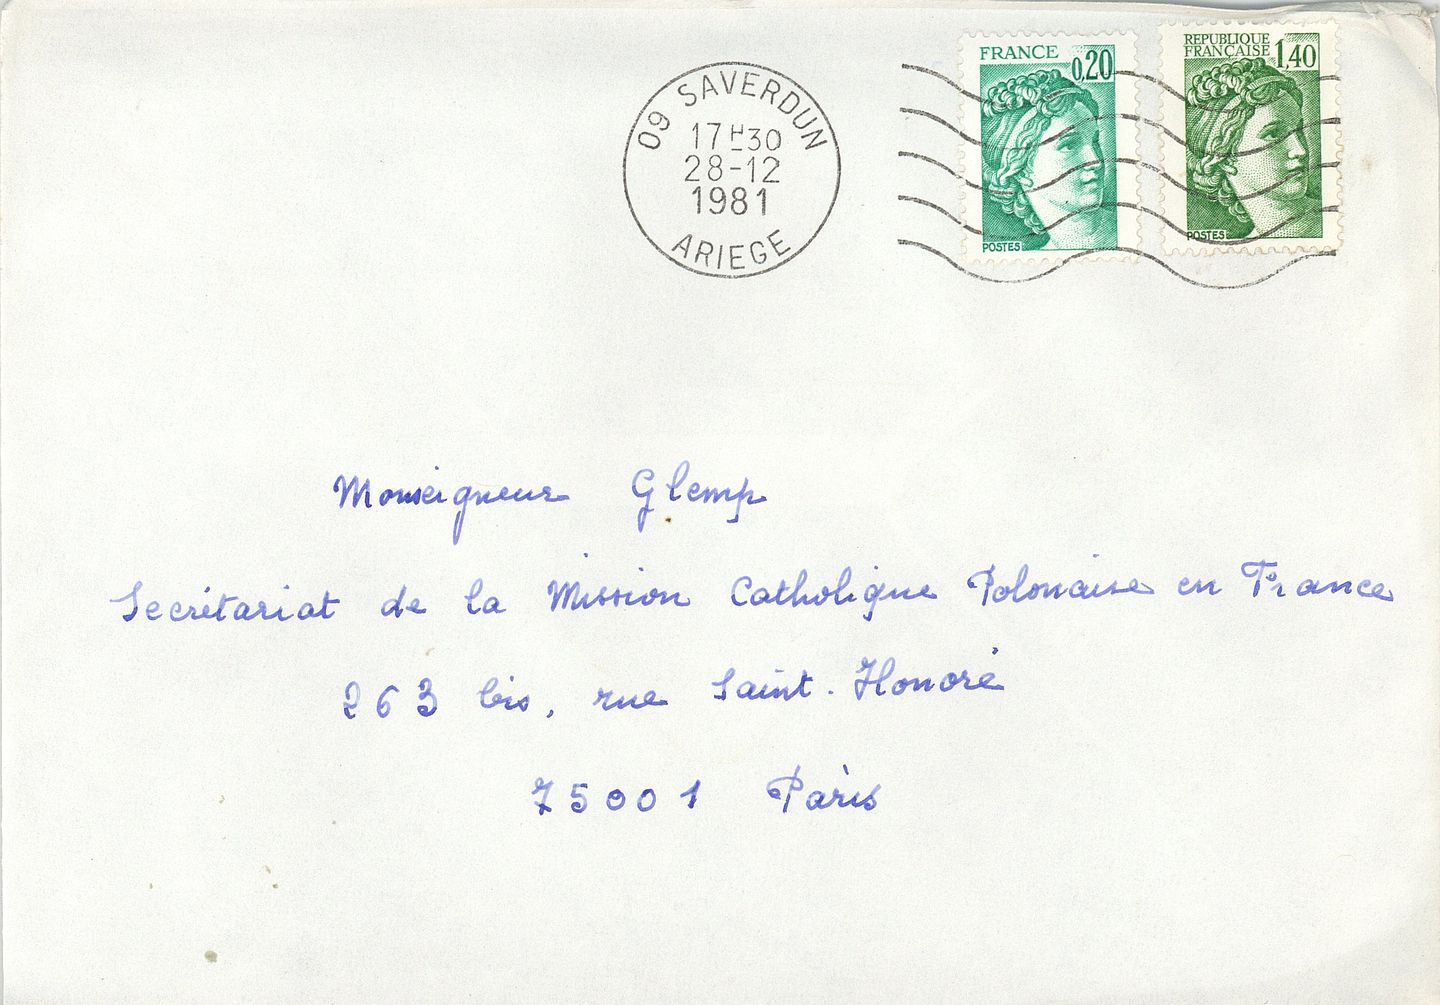 09 SAVERDUN
17H30
28-12
1981
ARIEGE
FRANCE
0,20
POSTES
REPUBLIQUE
FRANÇAISE
1,40
POSTES
Monseigneur Glemp
Secrétariat de la Mission Catholique Polonaise en France
263 bis, rue Saint-Honoré
75001 Paris